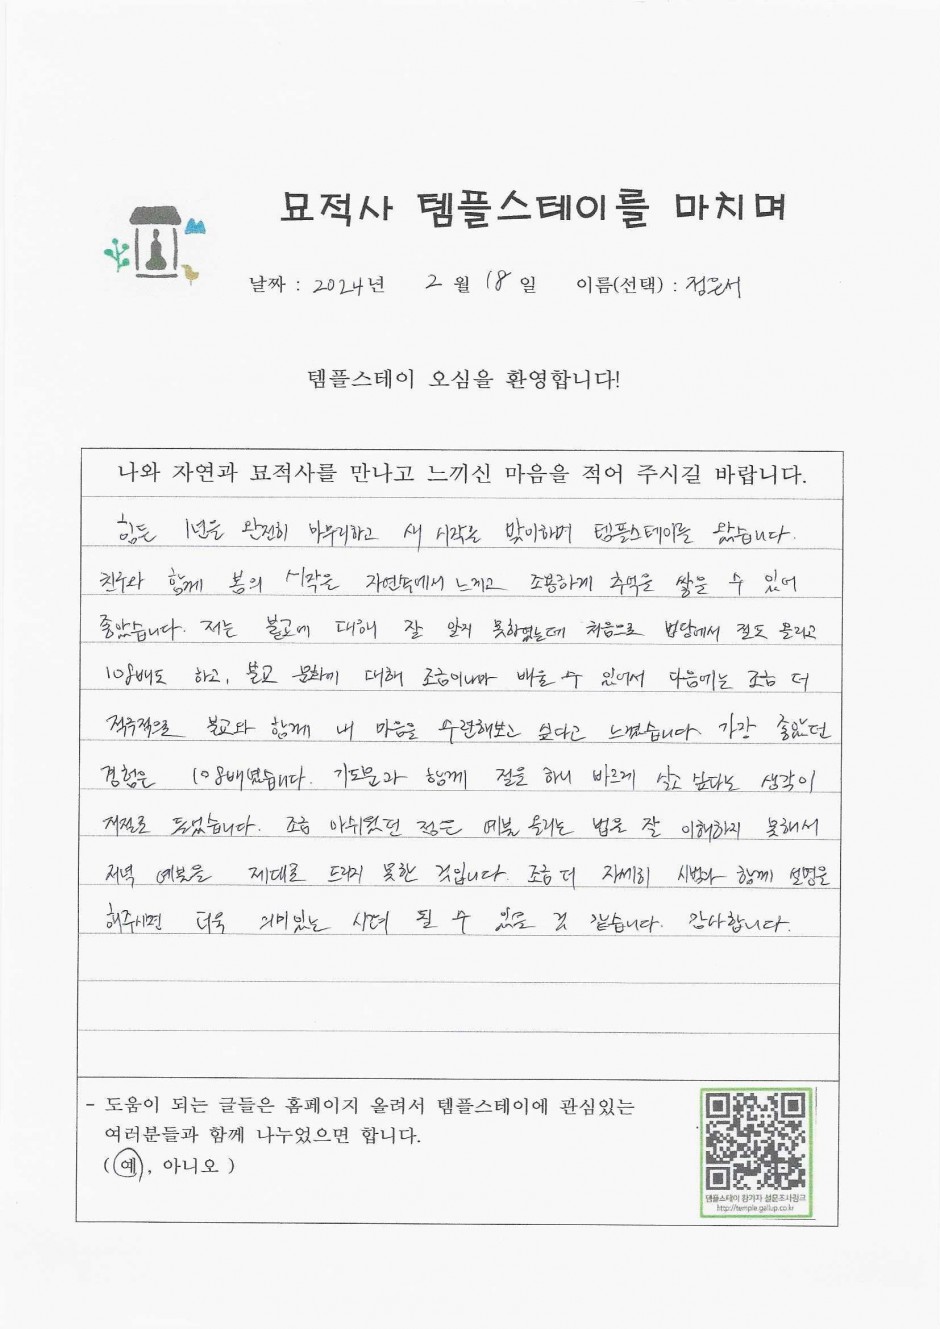 묘적사 템플스테이를 마치며
날짜 : 2024년 2월 18일 이름(선택) : 정은서
템플스테이 오심을 환영합니다!
나와 자연과 묘적사를 만나고 느끼신 마음을 적어 주시길 바랍니다.
힘든 1년을 완전히 마무리하고 새 시작을 맞이하며 템플스테이를 왔습니다.
친구와 함께 봄의 시작을 자연속에서 느끼고 조용하게 추억을 쌓을 수 있어
좋았습니다. 저는 불교에 대해 잘 알지 못하였는데 처음으로 법당에서 절도 올리고
108배도 하고, 불교 문화에 대해 조금이나마 배울 수 있어서 다음에는 조금 더
적극적으로 불교와 함께 내 마음을 수련해보고 싶다고 느꼈습니다. 가장 좋았던
경험은 108배였습니다. 기도문과 함께 절을 하니 바르게 살고 싶다는 생각이
저절로 들었습니다. 조금 아쉬웠던 점은 예불 올리는 법을 잘 이해하지 못해서
저녁 예불을 제대로 드리지 못한 것입니다. 조금 더 자세히 시범과 함께 설명을
해주시면 더욱 의미있는 시간이 될 수 있을 것 같습니다. 감사합니다.
- 도움이 되는 글들은 홈페이지 올려서 템플스테이에 관심있는
여러분들과 함께 나누었으면 합니다.
(예, 아니오 )
템플스테이 참가자 설문조사링크
http://temple.gallup.co.kr